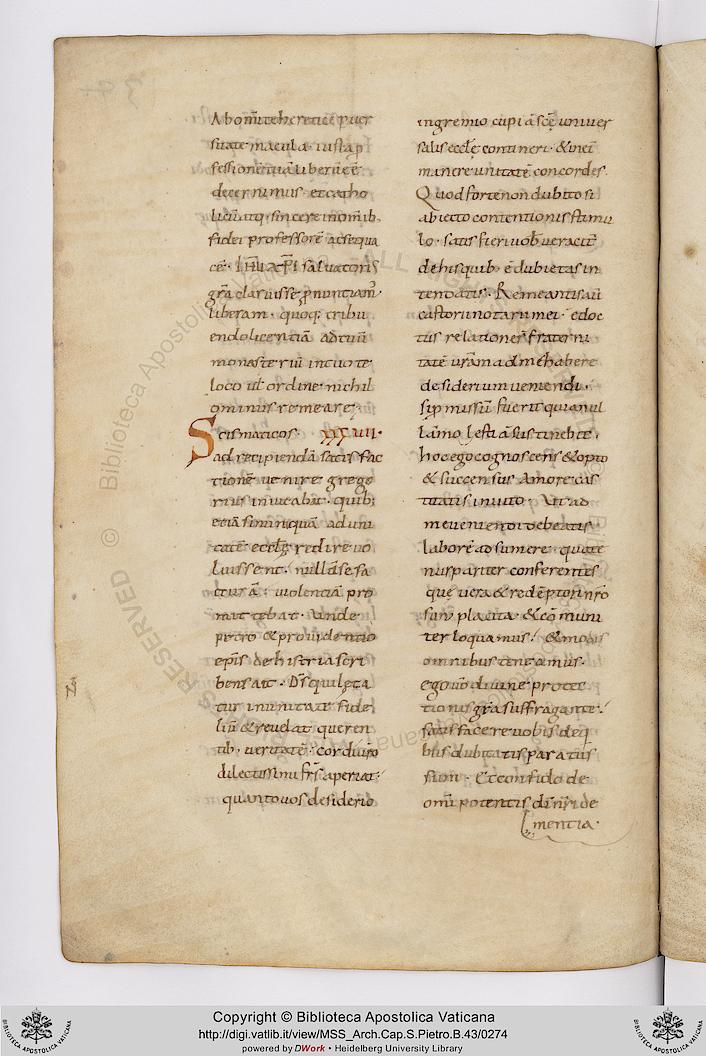 Ab omi te heretice puer
sitate macula iusta p
fessione tua liberu ee
decernimus et catho
licu atq sincere inomib
fidei professore ac sequa
ce ihu xpi salvatoris
gra claruisse pnuntiam
liberam quoq tribu
endo licentia ad tuu
monasteriu in tuo te
loco ut ordine nichil
ominus remeare
Scismaticos XXXVII
ad recipienda satisfac
tione venire grego
rius invitabat quib
etia si nunqua ad uni
tate eccle redire vo
luissent nulla se fa
ctura violentia pro
mittebat Unde
petro et providentio
epis de histria scri
bens ait Ds qui leta
tur in unitate fide
liu et revelat queren
tib veritate cor divino
dilectissimi frs aperiat
quanto vos desiderio
in gremio cupia sce univer
salis eccle contineri et in ei
manere unitate concordes
Quod forte non dubito si
abiecto contentionis stimu
lo satisfieri vob veracit
de hisquib e dubietas in
tendatis Remeantis au
castori notarii mei edoc
tus relatione fraterni
tate vram ad me habere
desiderium veniendi
si pmissu fuerit quia nul
la molestia sustinebit
hoc ego cognoscens et opto
et succensus Amore cas
titatis invito Ut ad
me veniendi debeatis
labore adsumere quate
nus pariter conferentes
que vera et redeptori nro
sun placita et comuni
ter loquamus et modis
omnibus teneamus
ego vo divine protec
tionis gra suffragante
satisfacere vobis de q
bus dubitatis paratus
sum Et confido de
omipotentis di nri cle
mentia
Copyright © Biblioteca Apostolica Vaticana
http://digi.vatlib.it/view/MSS_Arch.Cap.S.Pietro.B.43/0274
powered by DWork • Heidelberg University Library